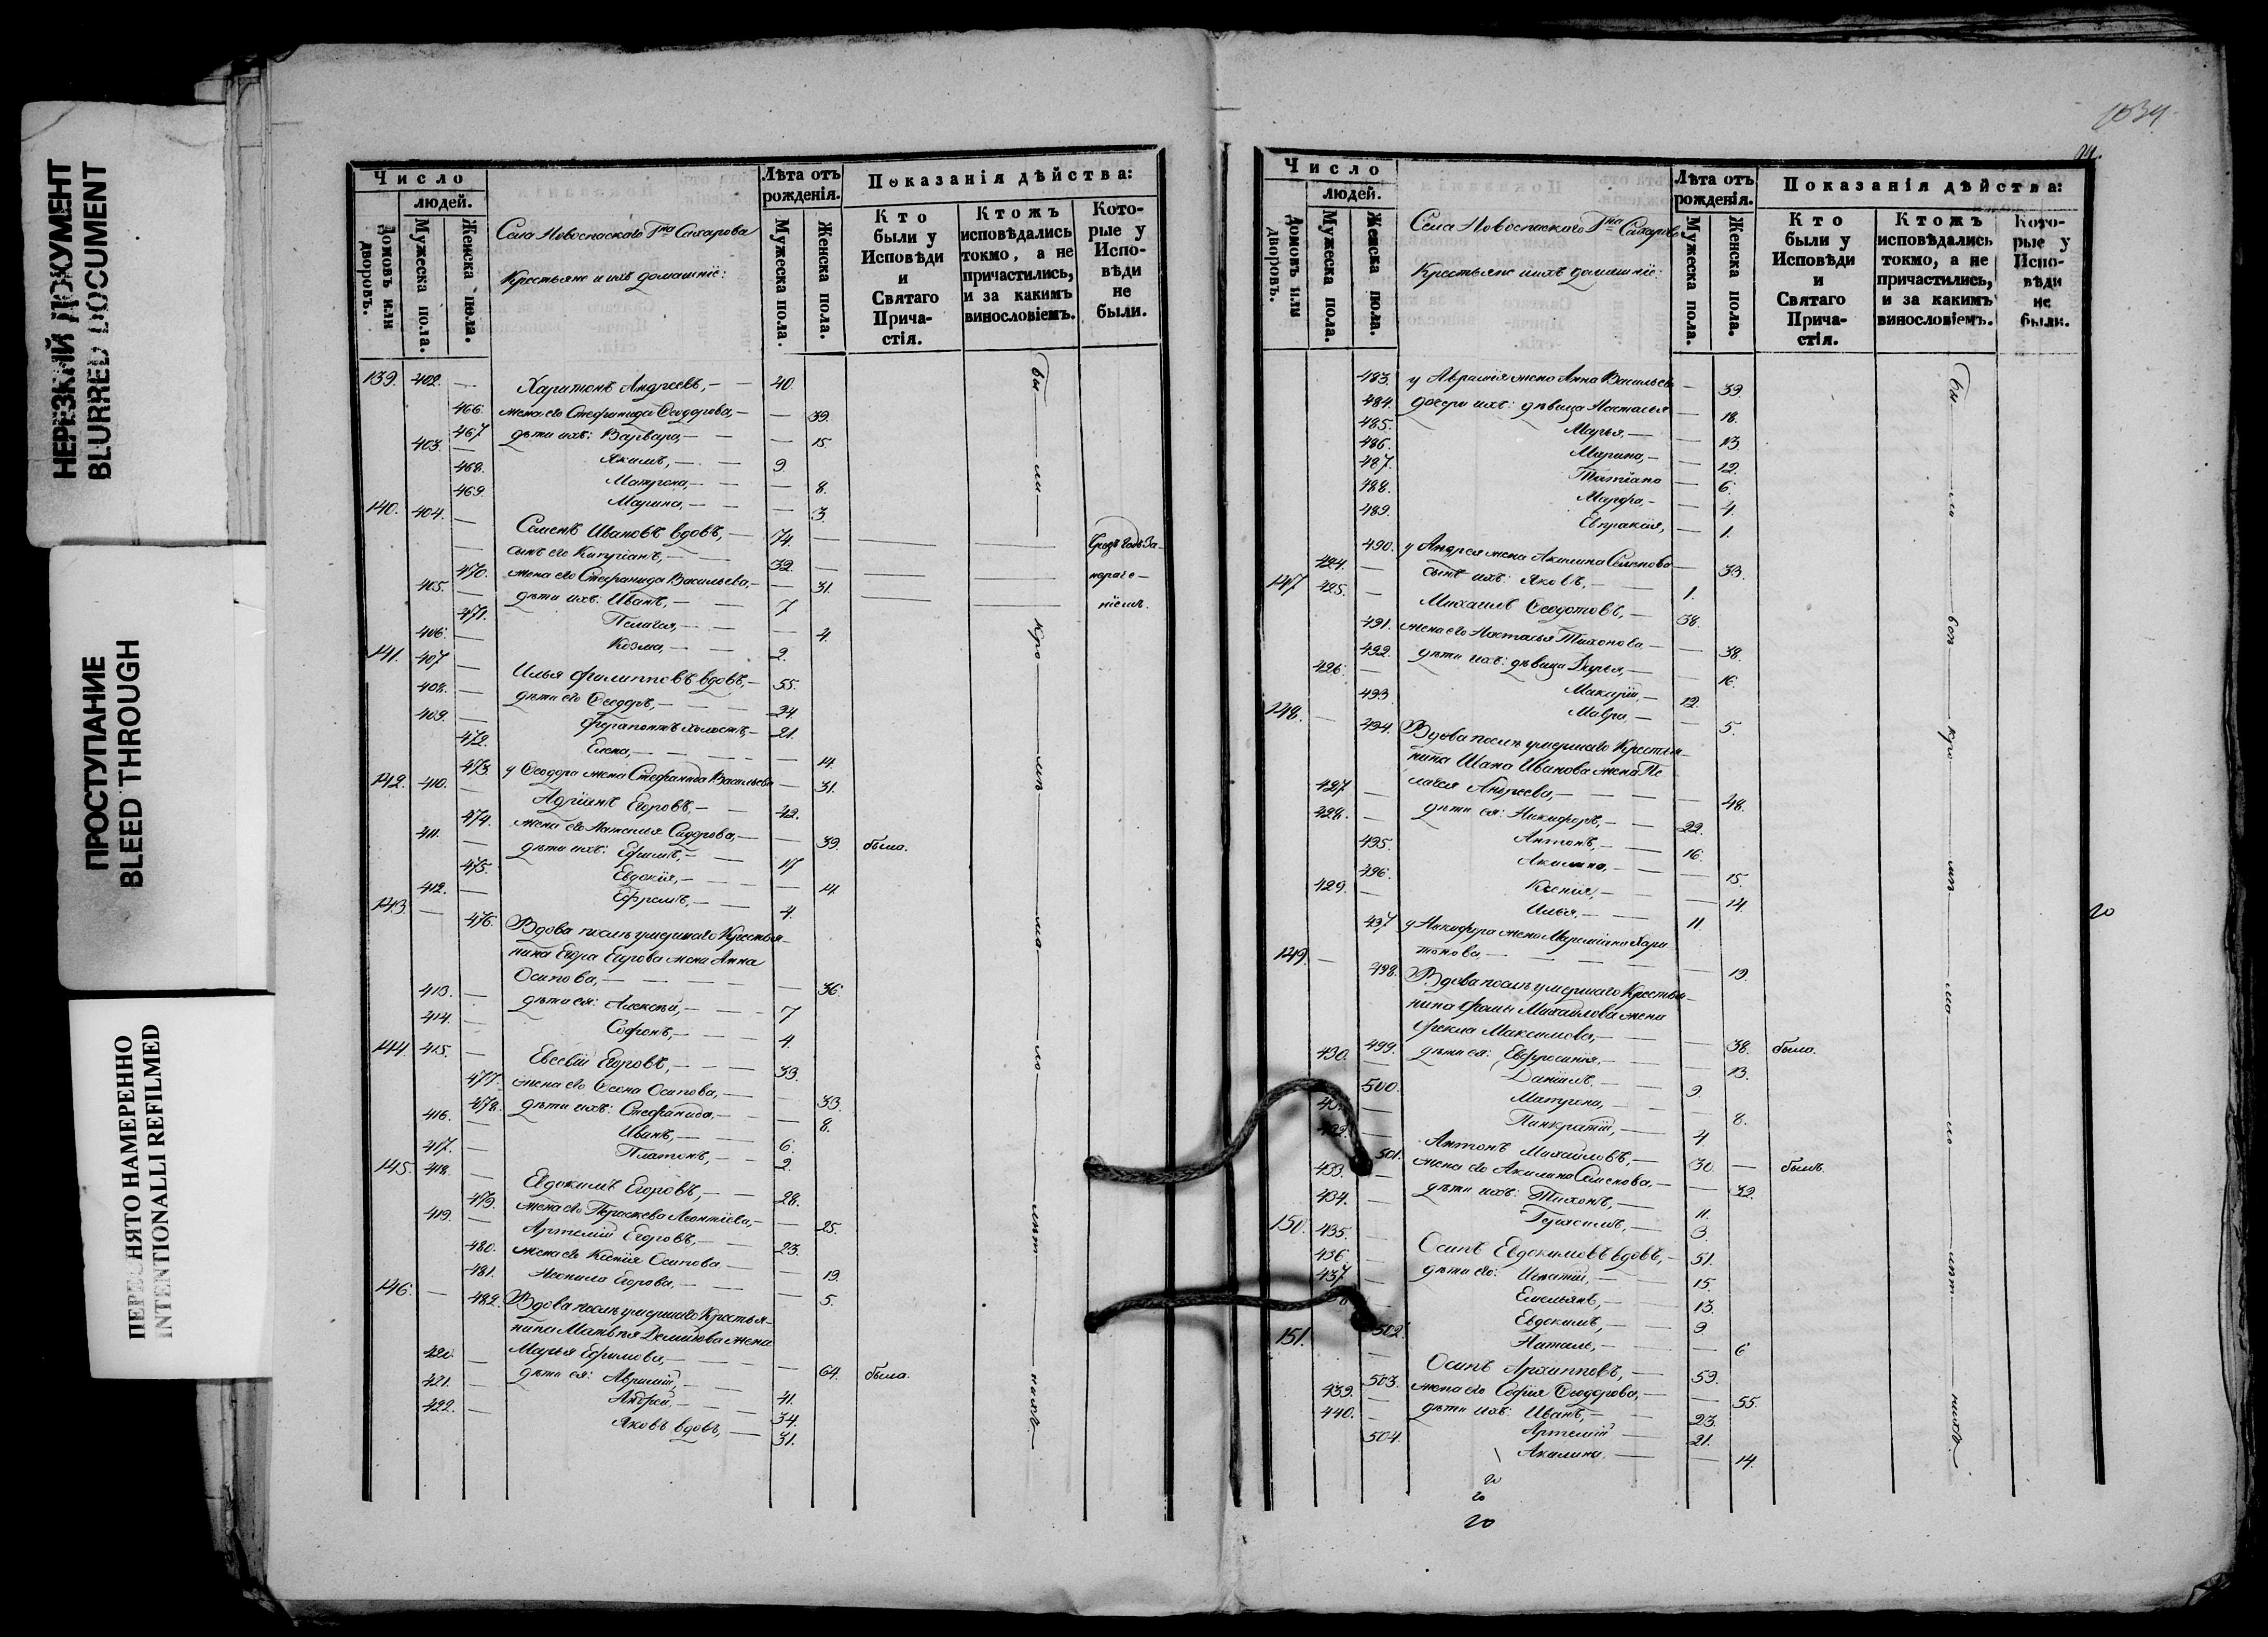 НЕРЕЗКИЙ ДОКУМЕНТ
BLURRED DOCUMENT
ПРОСТУПАНИЕ
BLEED THROUGH
НЯТО НАМЕРЕННО
INTENTIONALLI REFILMED
Число
людей.
Домовъ или дворовъ.
Мужеска пола.
Женска пола.
Села Новоспаскаго Гна Сахарова
Крестьяне и ихъ домашніе:
Лѣта отъ рожденія.
Мужеска пола.
Женска пола.
Показанія дѣйства:
Кто были у Исповѣди и Святаго Причастія.
Ктожъ исповѣдались токмо, а не причастились, и за какимъ винословіемъ.
Которые у Исповѣди не были.
139. 402. — Харитонъ Андреевъ, — 40.
466. жена его Стефанида Ѳеодорова, — 39.
467 дѣти ихъ: Варвара, — 15.
403. — Якимъ, — 9
468. Матрона, — 8.
469. Марина, — 3.
140. 404. — Семенъ Ивановъ вдовъ, — 74.
— сынъ его Кипріанъ, — 32.
470. жена его Стефанида Васильева, — 31.
405. — дѣти ихъ: Иванъ, — 7
471. Пелагея, — 4.
406. — Козма, — 2.
141. 407 — Илья Филипповъ вдовъ, — 55.
408. — дѣти его Ѳеодоръ, — 24.
409. — Ферапонтъ холостъ, — 21.
472. Елена, — 14.
473. у Ѳеодора жена Стефанида Васильева — 31.
142. 410. — Адріанъ Егоровъ, — 42.
474. жена его Наталья Сидорова, — 39. была.
411. — дѣти ихъ: Ефимъ, — 17
475. Евдокія, — 14.
412. — Ефремъ, — 4.
143. — 476. Вдова послѣ умершаго Крестья-
нина Егора Егорова жена Анна
Осипова, — 36.
413. — дѣти ея: Алексѣй, — 7
414. — Софронъ, — 4.
144. 415. — Евсевій Егоровъ, — 33.
477. жена его Ѳеона Осипова, — 33.
478. дѣти ихъ: Стефанида, — 8.
416. — Иванъ, — 6.
417. — Платонъ, — 2.
145. 418. — Евдокимъ Егоровъ, — 28.
479. жена его Параскева Леонтіева, — 25.
419. — Артемій Егоровъ, — 23.
480. жена его Ксенія Осипова — 19.
481. Неонила Егорова, — 5.
146. — 482. Вдова послѣ умершаго Крестья-
нина Матвѣя Демидова жена
Марья Ефимова, — 64. была.
420. — дѣти ея: Аврамій, — 41.
421. — Андрей, — 34.
422. — Яковъ вдовъ, — 31.
1034
Число
людей.
Домовъ или дворовъ.
Мужеска пола.
Женска пола.
Села Новоспаского Гна Сахарова
Крестьяне и ихъ домашніе:
Лѣта отъ рожденія.
Мужеска пола.
Женска пола.
Показанія дѣйства:
Кто были у Исповѣди и Святаго Причастія.
Ктожъ исповѣдались токмо, а не причастились, и за какимъ винословіемъ.
Которые у Исповѣди не были.
483. у Аврамія жена Анна Васильев — 39.
484. дочери ихъ: дѣвица Наталья — 18.
485. Марья, — 13.
486. Марина, — 12.
487. Татіана — 6.
488. Марфа, — 4.
489. Евпраксія, — 1.
490. у Андрея жена Акилина Семенова — 33.
424. — сынъ ихъ: Яковъ, — 1.
147 425. — Михаилъ Ѳедотовъ, — 38.
491. жена его Наталья Тихонова — 38.
492. дѣти ихъ: дѣвица Дарья, — 16.
426. — Макарій, — 12.
493 Мавра, — 5.
148. — 494. Вдова послѣ умершаго Крестья-
нина Ивана Иванова жена Пе
лагея Андреева, — 48.
427 — дѣти ея: Никифоръ, — 22.
428. — Антонъ, — 16.
495. Акилина, — 15.
496. Ксенія, — 14.
429. — Илья, — 11
497 у Никифора жена Маремьяна Хари
тонова, — 19.
149. — 498. Вдова послѣ умершаго Крестья-
нина Фомы Михайлова жена
Фекла Максимова, — 38. была.
499. дѣти ея: Евфросинія, — 13.
430. — Даніилъ, — 9
500. Матрона, — 8.
Панкратій, — 4.
Антонъ Михайловъ, — 30 — былъ.
501. жена его Акилина Семенова, — 32.
433. — дѣти ихъ: Тихонъ, — 11.
434. — Герасимъ, — 3.
150. 435. — Осипъ Евдокимовъ вдовъ, — 51.
436 — дѣти его: Игнатій, — 15.
437. — Емельянъ, — 13.
— Евдокимъ, — 9.
502. Наталь, — 6
151. — Осипъ Архипповъ, — 59.
503. жена его Софія Ѳеодорова, — 55.
439. — дѣти ихъ: Иванъ, — 23.
440. — Артемій — 21.
504. Акилина. — 14.